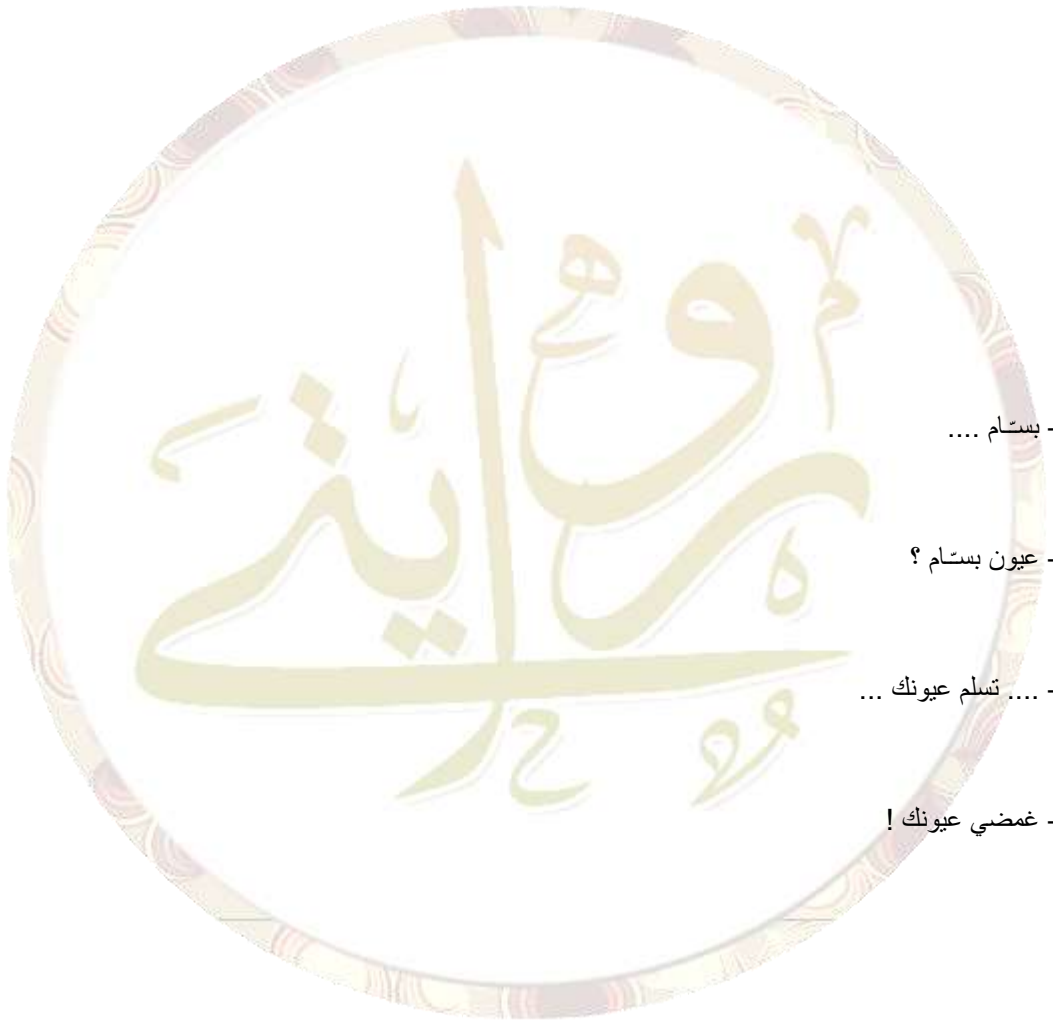 روايتي
- بسّام ....
- عيون بسّام ؟
- .... تسلم عيونك ...
- غمضي عيونك !